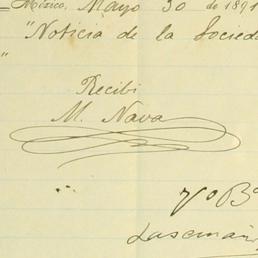 México, Mayo 30 de 1891
"Noticia de la Socied
"
Recibí
M. Nava
Vo Bo